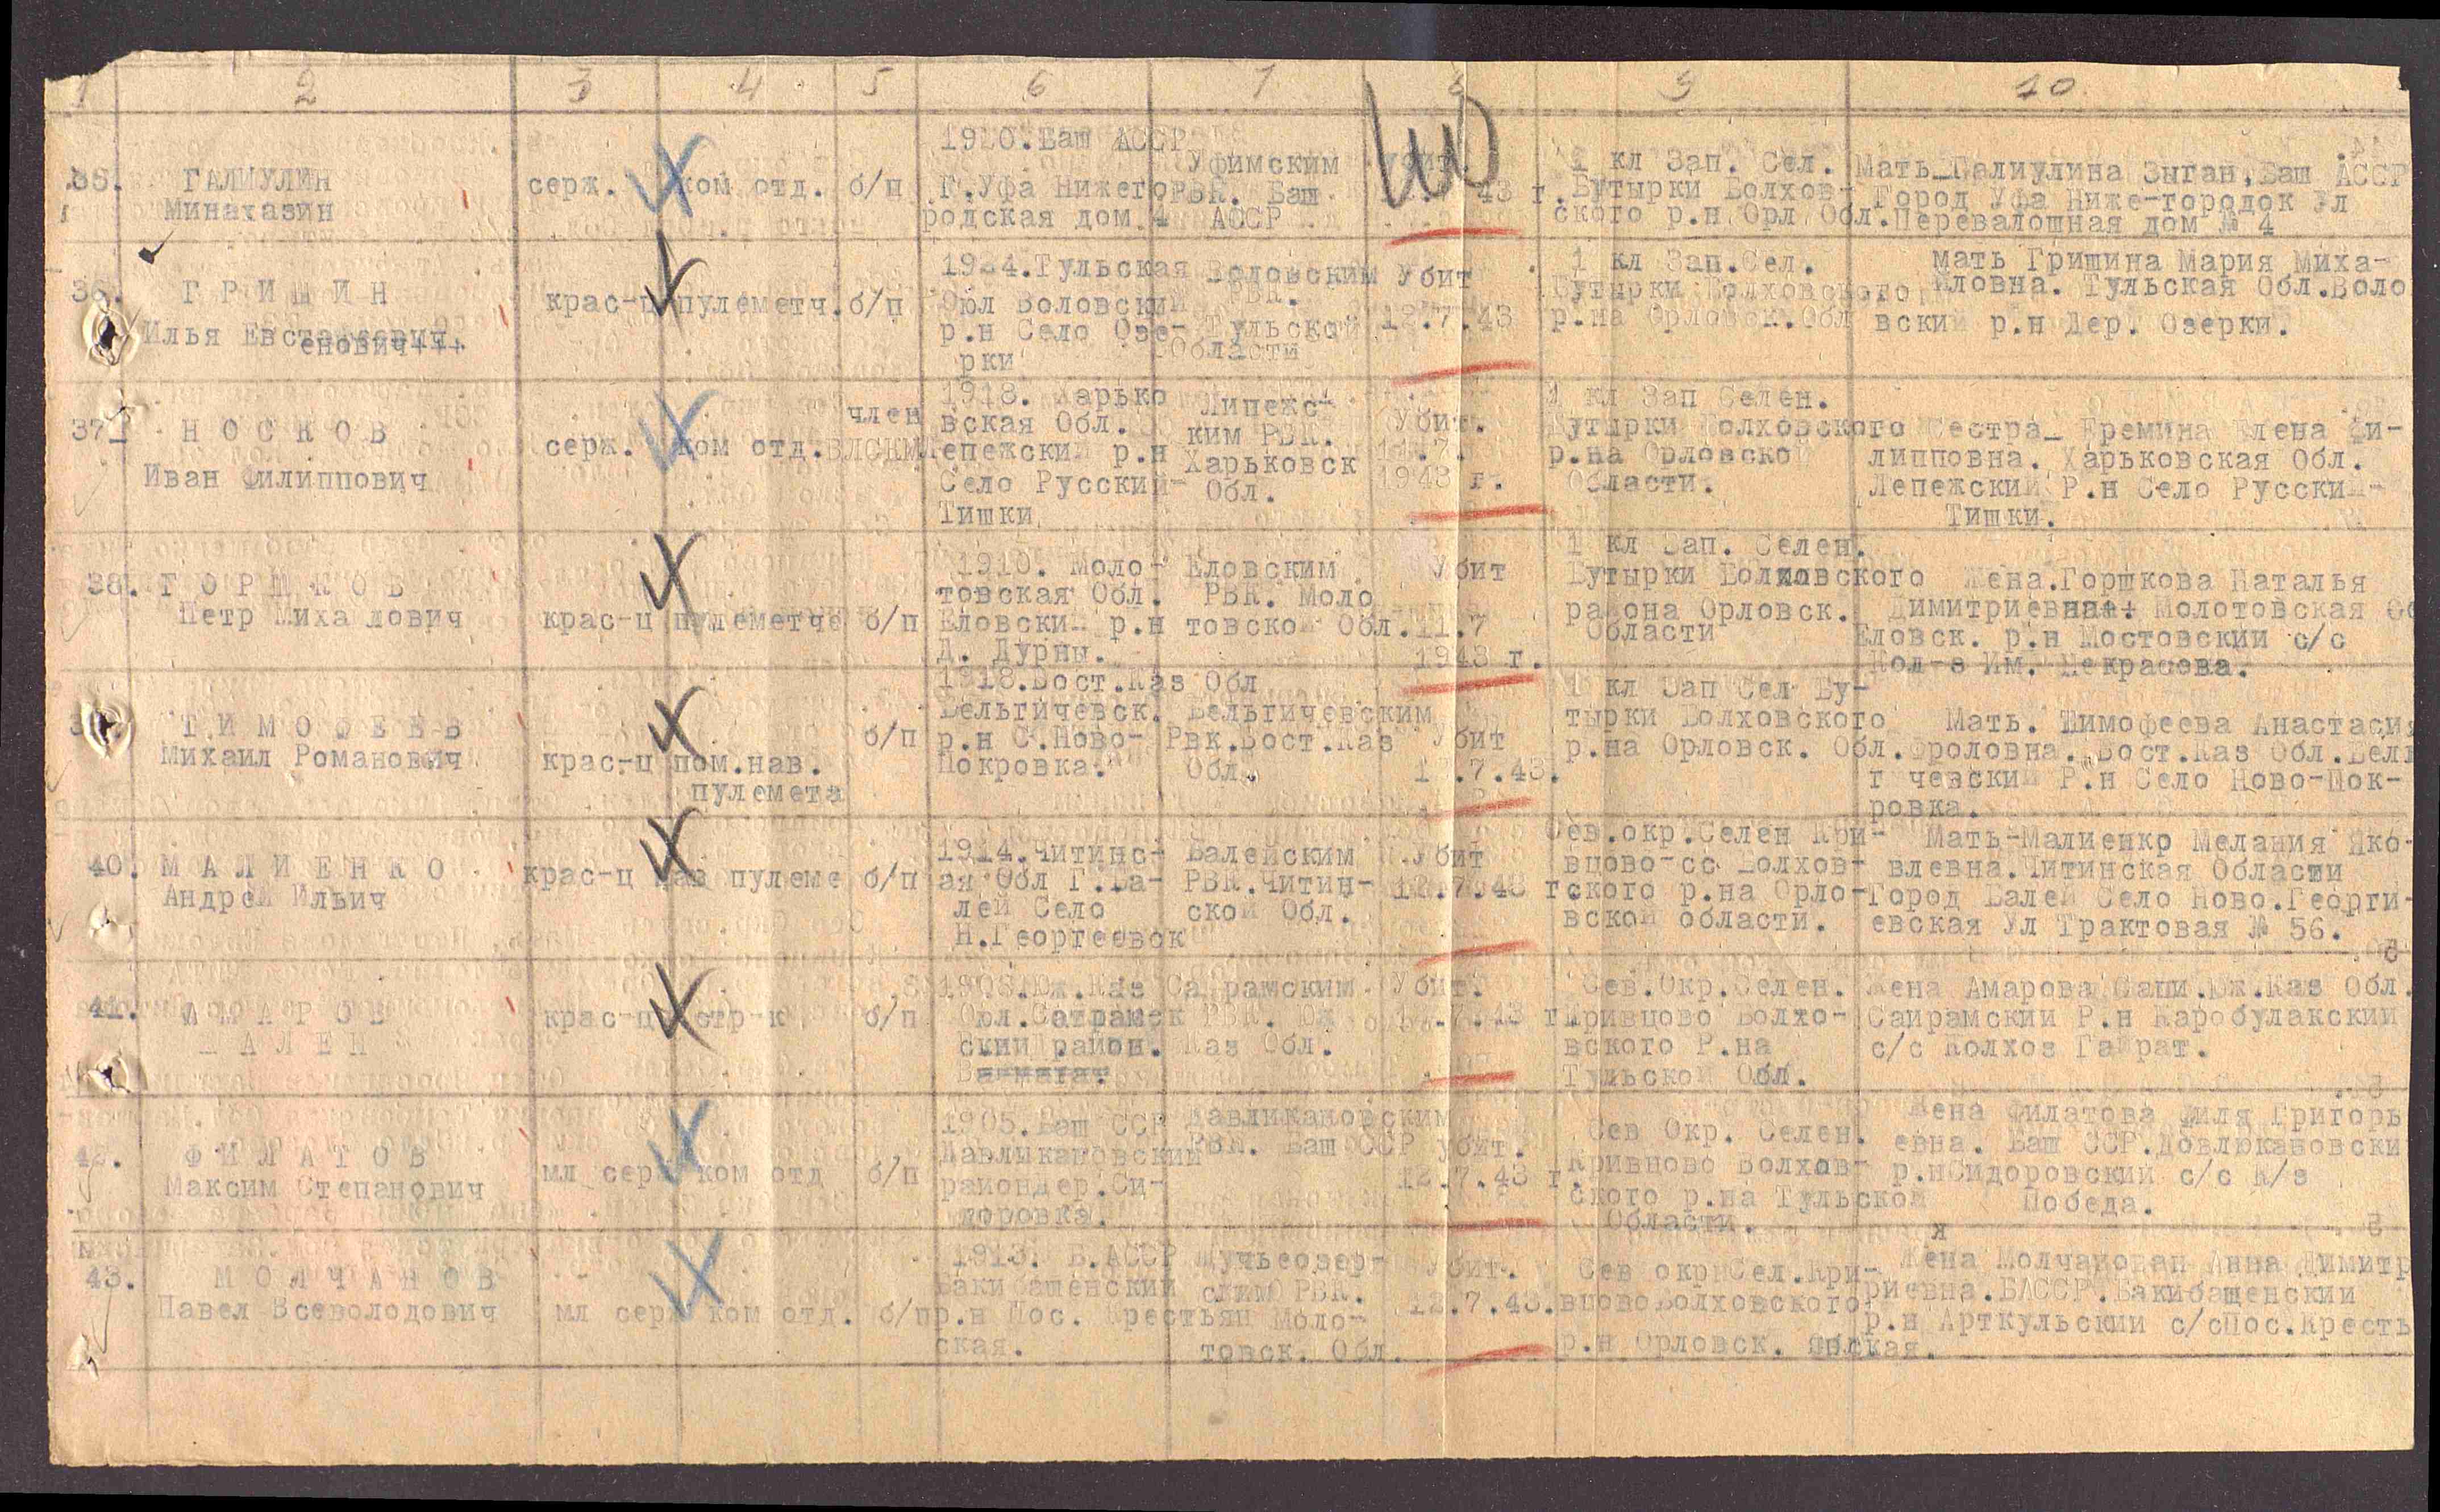 1 2 3 4 5 6 7 8 9 10
35. ГАЛИУЛИН
Минахазин
серж. ком отд. б/п
1920. Баш АССР
Г. Уфа Нижего
родская дом 4
Уфимским
РВК. Баш
АССР
Убит.
43 г.
1 кл Зап. Сел.
Бутырки Болхов-
ского р.н Орл Обл.
Мать Галиулина Зыган, Баш АССР
Город Уфа Ниже-городок Ул
Перевалошная дом № 4
36. ГРИШИН
Илья Евстафеевич
енович
крас-ц пулеметч. б/п
1924. Тульская
Обл Воловский
р.н Село Озе-
рки
Воловским
РВК.
Тульской
Области
Убит
12.7.43
1 кл Зап. Сел.
Бутырки Болховского
р.на Орловск. Обл
мать Гришина Мария Миха-
йловна. Тульская Обл. Воло
вский р.н Дер. Озерки.
37 НОСКОВ
Иван Филиппович
серж. ком отд.
член
ВЛСКМ
1918. Харько
вская Обл.
Лепежский р.н
Село Русский-
Тишки
Липежс-
ким РВК.
Харьковск
Обл.
Убит.
1943 г.
1 кл Зап Селен.
Бутырки Болховского
р.на Орловской
Области.
Сестра Еремина Елена Фи-
липповна. Харьковская Обл.
Лепежский Р.н Село Русский-
Тишки.
38. ГОРШКОВ
Петр Михайлович
крас-ц пулеметче б/п
1910. Моло-
товская Обл.
Еловский р.н
Д. Дурны.
Еловским
РВК. Моло
товской Обл.
Убит
11.7
1943 г.
1 кл Зап. Селен.
Бутырки Болховского
района Орловск.
Области
Жена. Горшкова Наталья
Димитриевна Молотовская
Еловск. р.н Мостовский с/с
Кол-з Им. Некрасова.
ТИМОФЕЕВ
Михаил Романович
крас-ц пом. нав.
пулемета
б/п
1918. Вост. Каз Обл
Бельгичевск.
р.н С. Ново-
Покровка.
Бельгичевским
Рвк. Вост. Каз
Обл.
Убит
.7.43.
1 кл Зап Сел Бу-
тырки Болховского
р.на Орловск. Обл.
Мать. Тимофеева Анастасия
Фроловна. Вост. Каз Обл. Бель
г чевский Р.н Село Ново-Пок-
ровка.
40. МАЛИЕНКО
Андрей Ильич
крас-ц нав пулеме б/п
1914. Читинс-
ая Обл Г. Ба-
лей Село
Н. Георгеевск
Балейским
РВК. Читин-
ской Обл.
Убит
12.7.43 г
Сев. окр. Селен Кри-
вцово-сс Болхов-
ского р.на Орло-
вской области.
Мать-Малиенко Мелания Яко-
влевна. Читинская Области
Город Балей Село Ново. Георги-
евская Ул Трактовая № 56.
41. АМАРОВ
крас-ц стр-к б/п
1908 Юж. Каз
Обл. Сайрамск
ский район.
Сайрамским
РВК. Юж
Каз Обл.
Убит.
.7.43 г
Сев. Окр. Селен.
Кривцово Болхо-
вского Р.на
Тульской Обл.
Жена Амарова Саши. Юж. Каз Обл.
Сайрамский Р.н Каробулакский
с/с Колхоз Гайрат.
42. ФИЛАТОВ
Максим Степанович
мл серж ком отд б/п
1905. Баш ССР
Давликановский
район Дер. Си-
доровка.
Давликановским
РВК. Баш ССР
убит.
12.7.43 г.
Сев Окр. Селен.
Кривцово Болхов-
ского р.на Тульской
Области.
Жена Филатова Филя Григорь
евна. Баш ССР. Довлюкановски
р.н Сидоровский с/с К/з
Победа.
43. МОЛЧАНОВ
Павел Всеволодович
мл серж ком отд. б/п
1913. Б. АССР
Бакибашенский
р.н Пос. Крестьян
ская.
Щучьеозер-
ским РВК.
Моло-
товск. Обл.
Убит.
12.7.43.
Сев окр Сел. Кри-
вцово Болховского
р.н Орловск.
Жена Молчанован Анна Димитр
риевна. БАССР. Бакибащенский
р.н Арткульский с/с Пос. Кресть
янская.